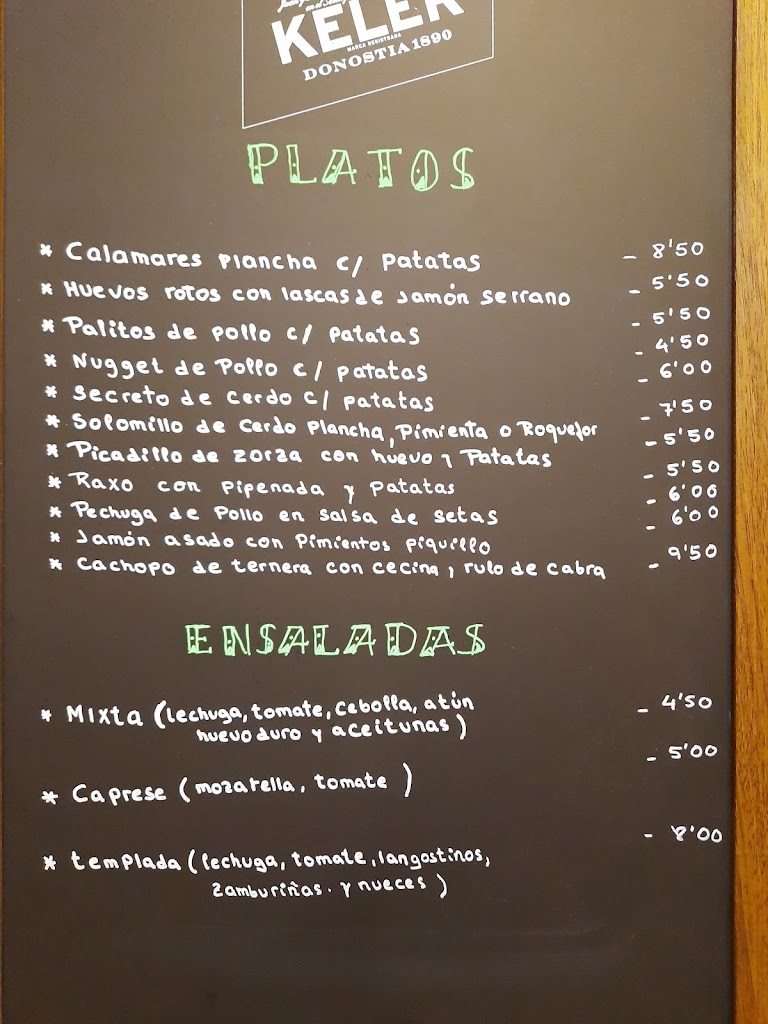 KELER
MARCA REGISTRADA
DONOSTIA 1890
PLATOS
* Calamares Plancha c/ Patatas - 8'50
* Huevos rotos con lascas de Jamón Serrano - 5'50
* Palitos de pollo c/ patatas - 5'50
* Nugget de Pollo c/ patatas - 4'50
* Secreto de cerdo c/ patatas - 6'00
* Solomillo de cerdo Plancha, Pimienta o Roquefor - 7'50
* Picadillo de zorza con huevo y Patatas - 5'50
* Raxo con Pipenada y Patatas - 5'50
* Pechuga de Pollo en salsa de setas - 6'00
* Jamón asado con Pimientos piquillo - 6'00
* Cachopo de ternera con cecina, rulo de cabra - 9'50
ENSALADAS
* Mixta (lechuga, tomate, cebolla, atún - 4'50
huevo duro y aceitunas)
* Caprese (mozarella, tomate) - 5'00
* templada (lechuga, tomate, langostinos, - 8'00
zamburiñas. y nueces)